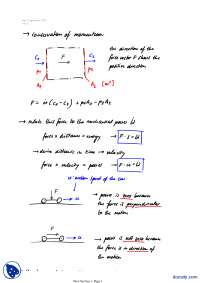 → conservation of momentum
the direction of the
force vector F shows the
positive direction
F
C₁
C₂
p₁
p₂
A₁
A₂ [m²]
F = ṁ (C₂ - C₁) + p₂A₂ - p₁A₁
→ relate this force to the mechanical power
force × distance = energy →
→ derive distance in time → velocity
force × velocity = power →
speed of the car
F
→ power is zero because
the force is perpendicular
to the motion
F
→ power is not zero because
the force is in direction of
the motion
New Section 1 Page 1
docsity.com